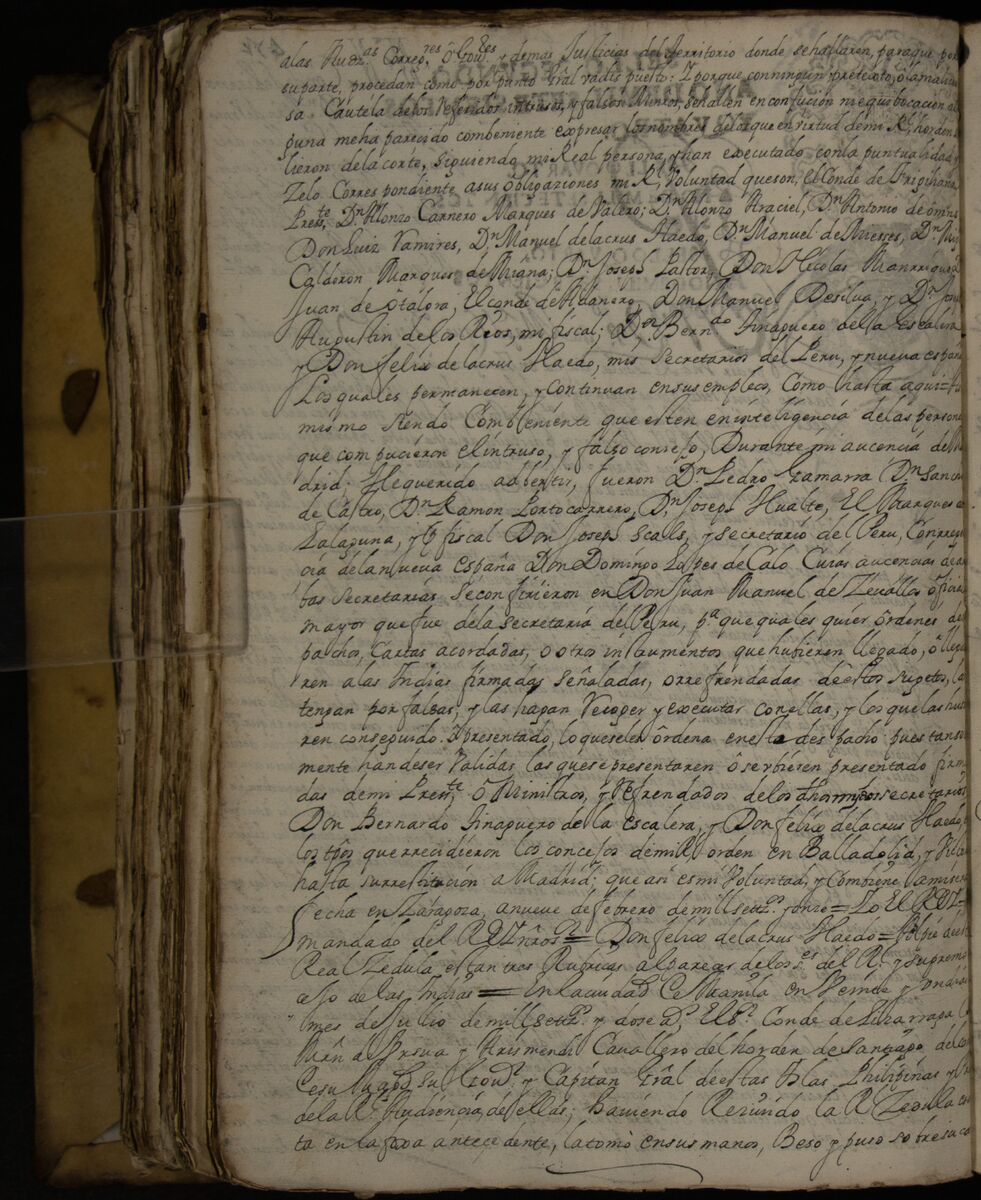 alas Audz.as Corres.res ô Gov.res y demas Justicias del territorio donde se hallaren, paraque por
su parte, procedan como por punto gral vadis puesto: Y porque con ningun pretexto, ô amalicio
sa Cautela delos referidos intrusos, y falsos Minros, señalen en confucion niequibocacion al
guna meha parecido combeniente expresar losnombres delosque en virtud demi Rl horden sa
lieron dela corte, siguiendo mi Real persona, y han executado conla puntualidad, y
Zelo Correspondiente asus obligaziones mi Rl Voluntad queson, el Conde de Frigiliana
Preste, Dn Alonzo Carnero Marques de Valero; Dn Alonzo Araciel, Dn Antonio de
Don Luiz Ramires, Dn Manuel delacrus Haedo, Dn Manuel de Miesses, Dn
Calderon Marques de Miana; Dn Joseph Pastor, Don Nicolas Manrrique
Juan de Otalora; El conde de Adanero, Don Manuel Desilva, y Dn Jose
Augustin de los Rios, mi fiscal; Don Berndo Tinaguero dela Escalera
y Don felix delacrus Haedo, mis Secretarios del Peru, y nueva españa
Los quales permanecen, y continuan ensus empleos, Como hasta aqui =
mismo siendo Combeniente que esten en inteligencia delas persona
que compucieron el intruso, y falso consejo, Durante mi aucencia de Ma
drid; He querido adbertir, fueron Dn Pedro Gamarra Dn Sancho
de Castro, Dn Ramon Portocarrero, Dn Joseph Hualte, El Marques de
Lalaguna, y fiscal Don Joseph Scalls, y secretario del Peru,
cia dela nueva España Don Domingo Lopes de Calo Cuias aucencias de am
bas Secretarias seconfirieron en Don Juan Manuel de Zevallos ôficial
mayor que fue dela secretaria del Peru, pa que quales quier ôrdenes des
pachos, Cartas acordadas, o otros instrumentos que hubieren llegado, ô llega
ren alas Indias firmadas señaladas, o rrefrendadas de estos sugetos, las
tengan por falsas, y las hagan recoger y executar con ellas, y los que las hubie
ren conseguido. ô presentado, lo que seles ôrdena en este despacho pues tansola
mente han deser validas las que se presentaren ô se ubieren presentado firma
das demi Preste, ô Ministros, y refrendados de los dhos mis secretarios
Don Bernardo Tinaguero dela Escalera, y Don felix delacrus Haedo,
los tpos que rrecidieron los concejos demi Rl orden en Balladolid, y Vitoria
hasta surrestitucion a Madrid; que asi es mi Voluntad, y Combiene amiser
fecha en Zaragoza, a nueve de febrero de mill settos y onze = Yo El REY =
mandado del REY nro sr = Don felix delacrus Haedo = Al pie dela
Real Zedula estan tres Rubricas al parecer delos ses del Rl y Supremo
cejo de las Indias = En la ciudad de Manila en Veinte y
mes de Jullio de mill settos y dose as El Sr Conde de Lizarraga
Mrn de Ursua y Arismendi Cavallero del horden de Santiago del
Cesu Magd su Govr y Capitan Gral de estas Yslas Philipinas y
dela Rl Audiencia de ellas; haviendo Recivido la Rl Zedula es
ta en la foxa antecedente, la tomò en sus manos, Beso y puso sobre su ca